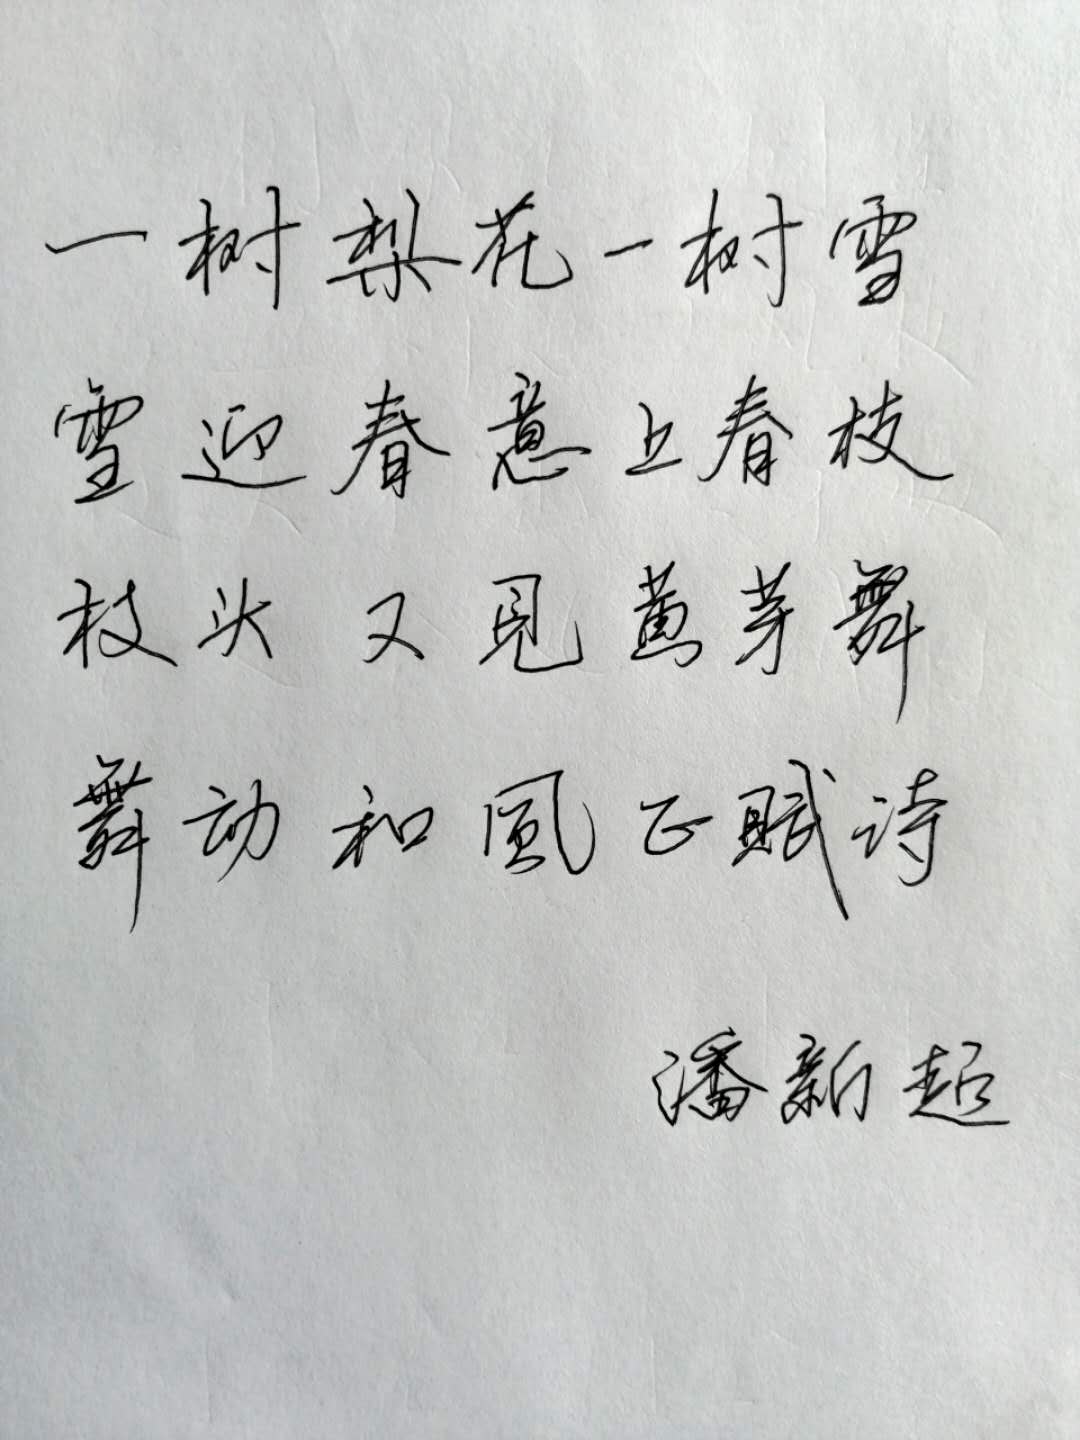 一树梨花一树雪
雪迎春意上春枝
枝头又见黄芽舞
舞动和風正赋诗
潘新超